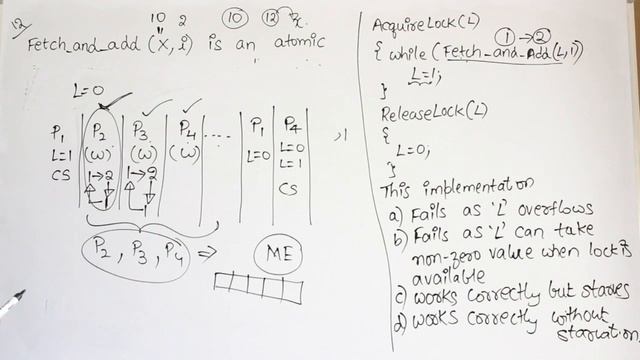 12
10 2 10 12 x
Fetch_and_add (X, i) is an atomic
L=0
P1 P2 P3 P4 ..... P1 P4
L=1 (W) (W) (W) L=0 L=0
L=1
CS 1→2 1→2 CS
1 1
P2, P3, P4 ⇒ ME
AcquireLock(L)
1 → 2
{ while (Fetch_and_Add(L,1))
L=1;
}
ReleaseLock(L)
{
L=0;
}
This implementation
a) Fails as 'L' overflows
b) Fails as 'L' can take
non-zero value when lock is
available
c) works correctly but starves
d) works correctly without
starvation